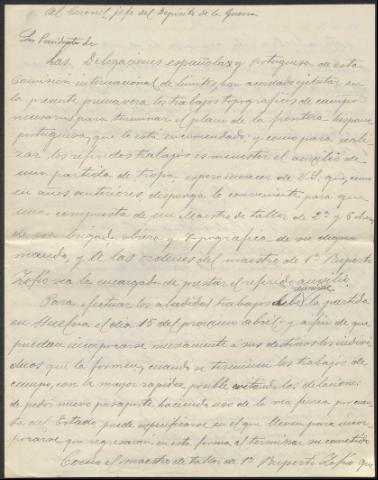 Al Coronel, Jefe del Depósito de la Guerra
Los Presidentes de
Las Delegaciones española y portuguesa de esta
Comisión internacional de límites, han acordado ejecutar en
la presente primavera los trabajos topográficos de campo
necesarios para terminar el plano de la frontera hispano
portuguesa, que le está encomendado y como para reali-
zar los referidos trabajos es menester el auxilio de
una partida de tropa, espero merecer de V.S. que, como
en años anteriores, disponga lo conveniente para que
una compuesta de un Maestro de taller de 2ª y 6
de esa brigada obrera y topográfica de su digno
mando, y a las órdenes del maestro de 1ª Ruperto
Zofío sea la encargada de prestar el referido auxilio
Para efectuar los aludidos trabajos debe la partida
en Huelva el día 15 del próximo abril; y a fin de que
puedan incorporarse nuevamente a sus destinos los indivi-
duos que la formen, cuando se terminen los trabajos de
campo, con la mayor rapidez posible evitando las dilaciones
de pedir nuevo pasaporte haciendo uso de la vía férrea por cuen-
ta del Estado, puede especificarse en el que lleven para incor-
porarse que regresarán en esta forma al terminar su cometido
Como el maestro de taller de 1ª Ruperto Zofío que